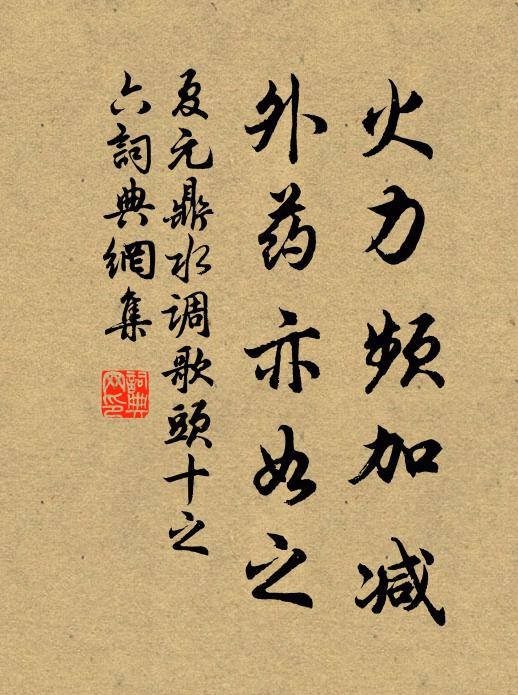 火力频加减
外药亦如之
夏元鼎水调歌頭十之
六詞典網集
詞典
网印